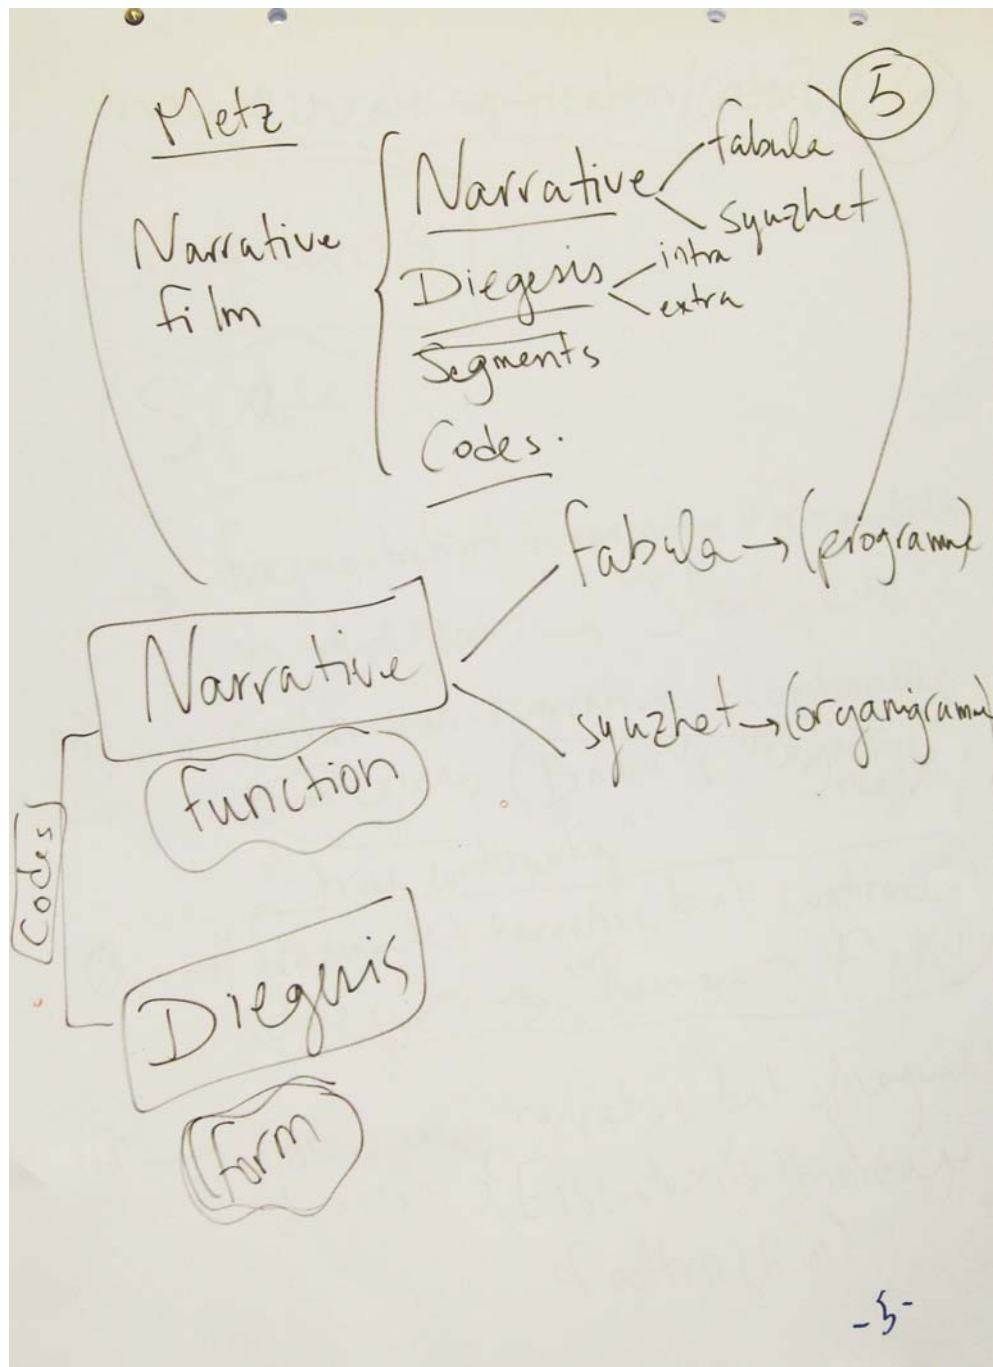 5
Metz
Narrative
film
Narrative
fabula
syuzhet
Diegesis
intra
extra
Segments
Codes.
fabula → (programme)
Narrative
syuzhet → (organigramme)
function
Codes
Diegesis
form
-5-